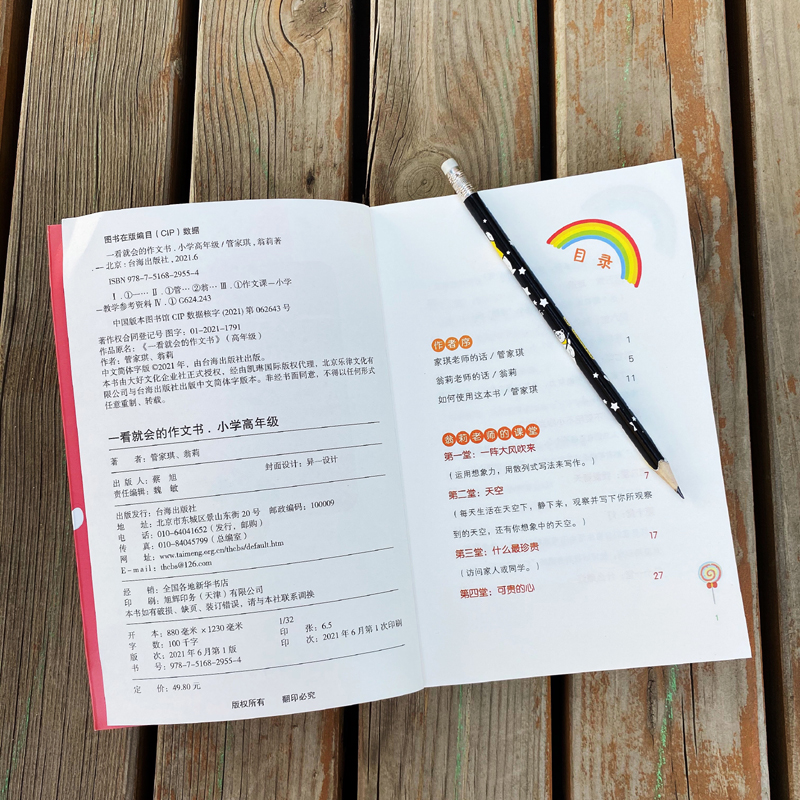 图书在版编目（CIP）数据
一看就会的作文书．小学高年级／管家琪，翁莉著
．—北京：台海出版社，2021.6
ISBN 978-7-5168-2955-4
Ⅰ．①一⋯ Ⅱ．①管⋯②翁⋯ Ⅲ．①作文课—小学
—教学参考资料 Ⅳ．①G624.243
中国版本图书馆 CIP 数据核字 (2021) 第 062643 号
著作权合同登记号 图字：01-2021-1791
作品原名：《一看就会的作文书》（高年级）
作者：管家琪、翁莉
中文简体字版 ©2021 年，由台海出版社出版。
本书由大好文化企业社正式授权、经由凯琳国际版权代理，北京乐律文化有
限公司与台海出版社出版中文简体字版本。非经书面同意，不得以任何形式
任意重制、转载。
一看就会的作文书．小学高年级
著　　者：管家琪、翁莉
出 版 人：蔡　旭　　封面设计：异一设计
责任编辑：魏　敏
出版发行：台海出版社
地　　址：北京市东城区景山东街 20 号　邮政编码：100009
电　　话：010-64041652（发行，邮购）
传　　真：010-84045799（总编室）
网　　址：www.taimeng.org.cn/thcbs/default.htm
E-mail：thcbs@126.com
经　　销：全国各地新华书店
印　　刷：旭辉印务（天津）有限公司
本书如有破损、缺页、装订错误，请与本社联系调换
开　　本：880 毫米 ×1230 毫米　1/32
字　　数：100 千字　印　　张：6.5
版　　次：2021 年 6 月第 1 版　印　　次：2021 年 6 月第 1 次印刷
书　　号：978-7-5168-2955-4
定　　价：49.80 元
版权所有　翻印必究
目录
作者序
家琪老师的话／管家琪 1
翁莉老师的话／翁莉 5
如何使用这本书／管家琪 11
翁莉老师的课堂
第一堂：一阵大风吹来
（运用想象力，用散列式写法来写作。） 7
第二堂：天空
（每天生活在天空下，静下来，观察并写下你所观察
到的天空，还有你想象中的天空。）
第三堂：什么最珍贵 17
（访问家人或同学。）
第四堂：可贵的心 27
1